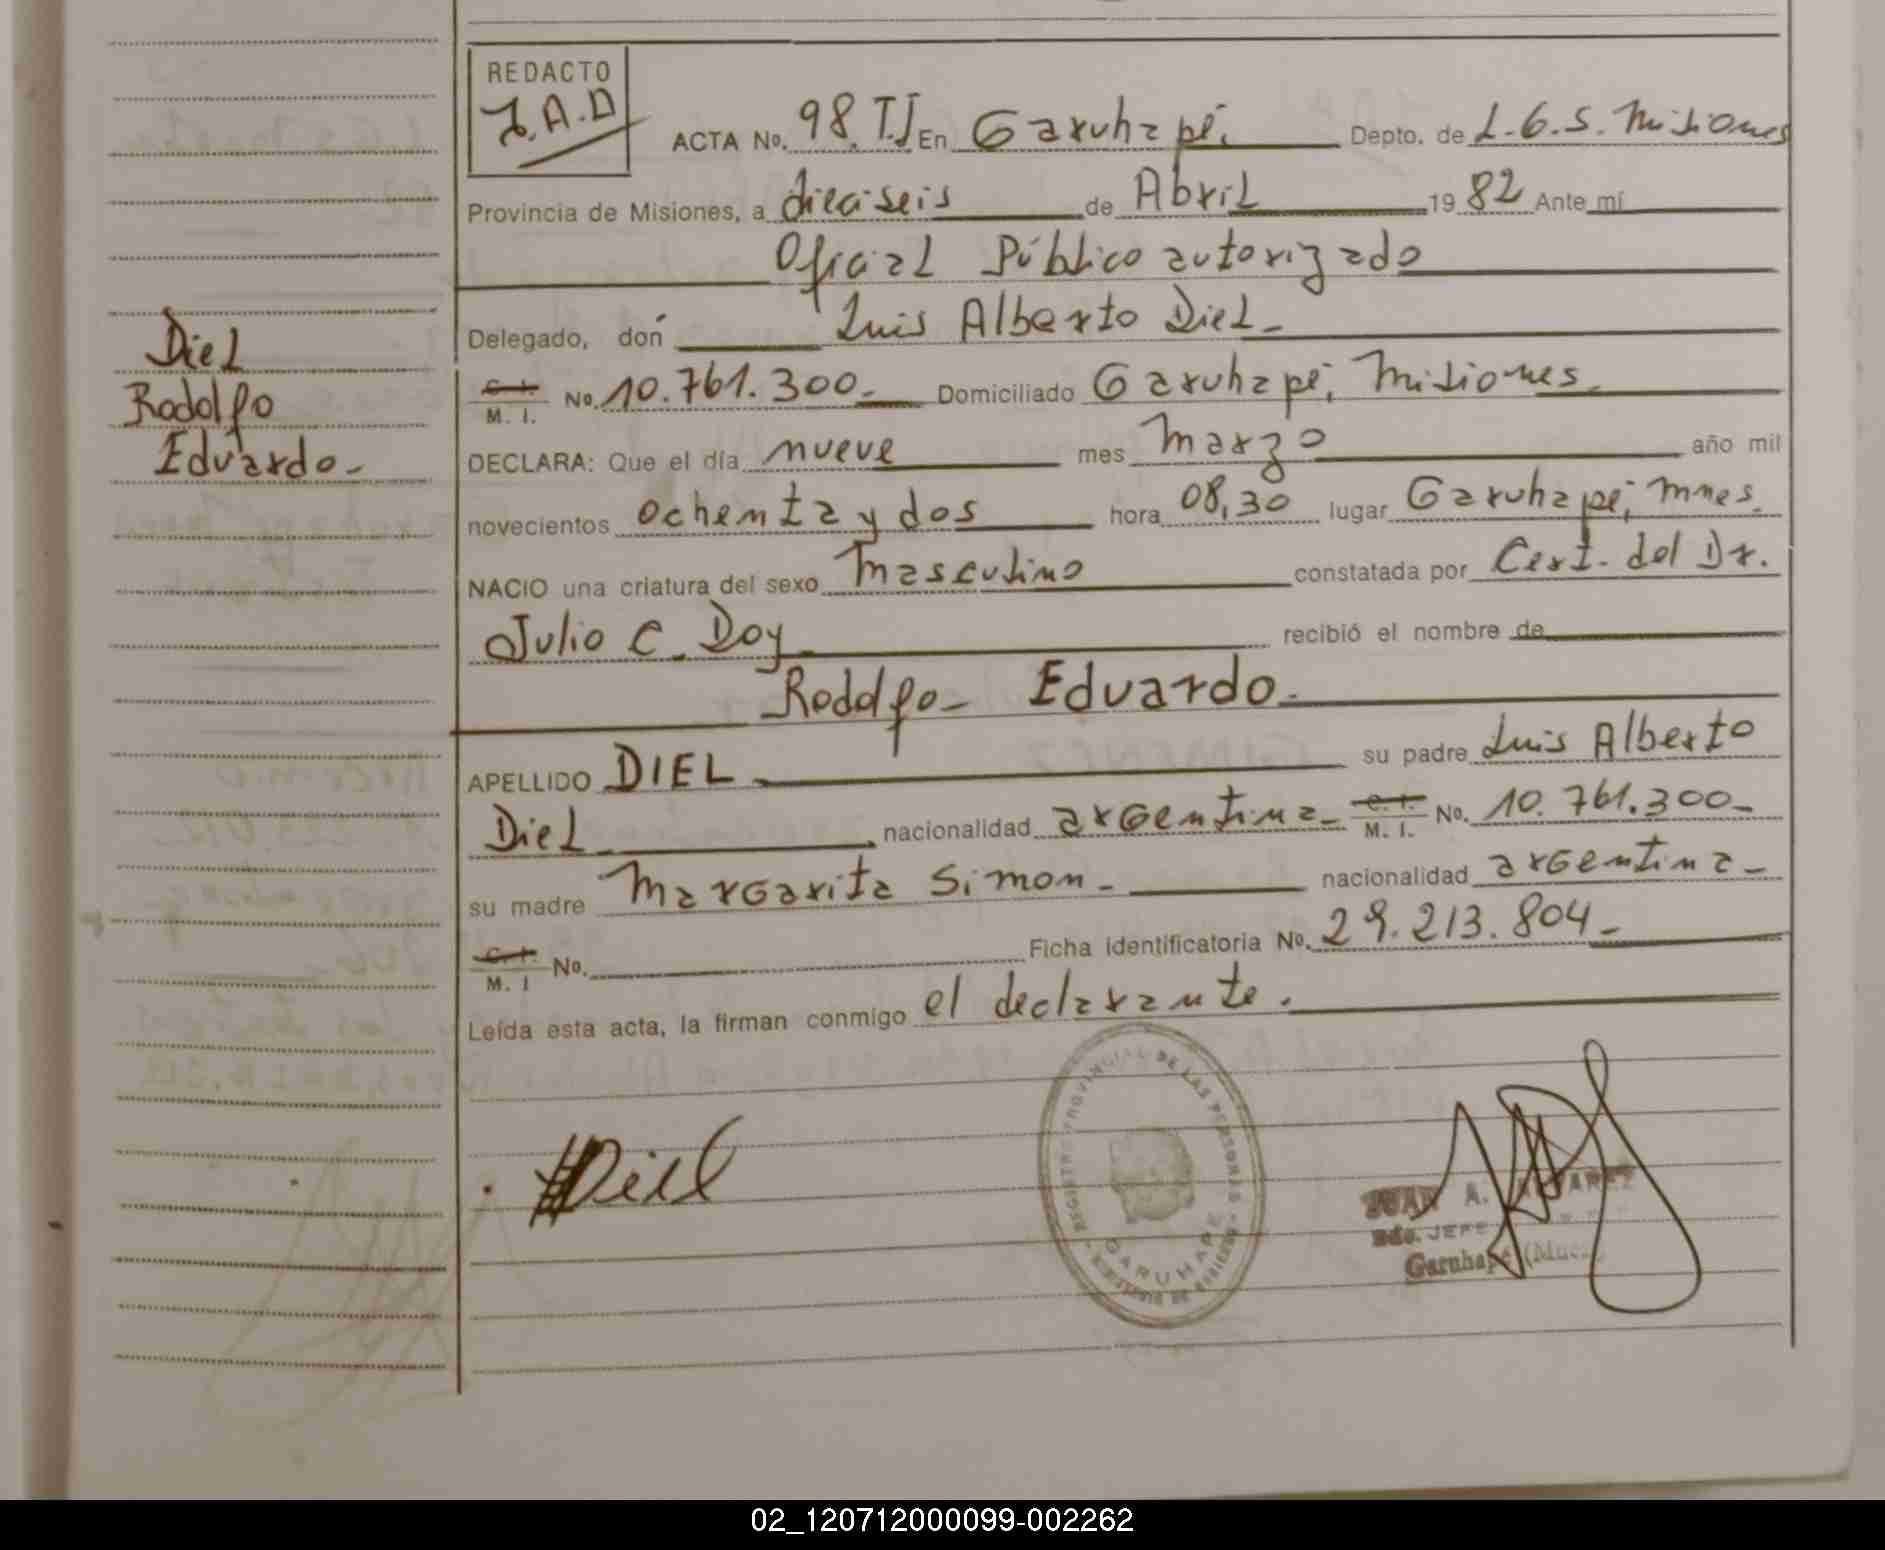 REDACTO
J.A.D
ACTA No. 98. T.J En Garuhapé. Depto. de L.G.S. Misiones
Provincia de Misiones, a dieciseis de Abril 1982 Ante mí
Oficial Público autorizado
Delegado, don Luis Alberto Diel-
C. I. M. I. No. 10.761.300- Domiciliado Garuhapé, Misiones-
DECLARA: Que el día nueve mes Marzo año mil
novecientos ochenta y dos hora 08,30 lugar Garuhapé, Mnes.
NACIO una criatura del sexo Masculino constatada por Cert. del Dr.
Julio C. Doy recibió el nombre de
Rodolfo- Eduardo-
APELLIDO DIEL su padre Luis Alberto
Diel nacionalidad argentina- C. I. M. I. No. 10.761.300-
su madre Margarita Simon- nacionalidad argentina-
C. I. M. I No. Ficha identificatoria No. 29.213.804-
Leída esta acta, la firman conmigo el declarante.
Diel
Rodolfo
Eduardo-
Diel
REGISTRO PROVINCIAL DE LAS PERSONAS
GARUHAPE
JUAN A. ALVAREZ
JEFE
Garuhapé
02_120712000099-002262